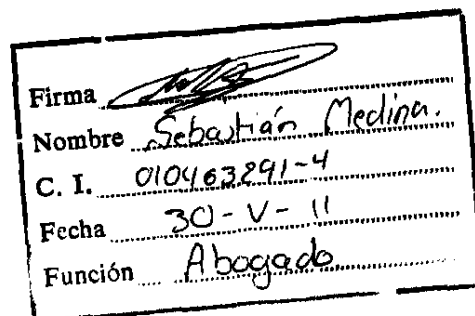 Firma
Nombre Sebastián Medina.
C. I. 010463291-4
Fecha 30-V-11
Función Abogado